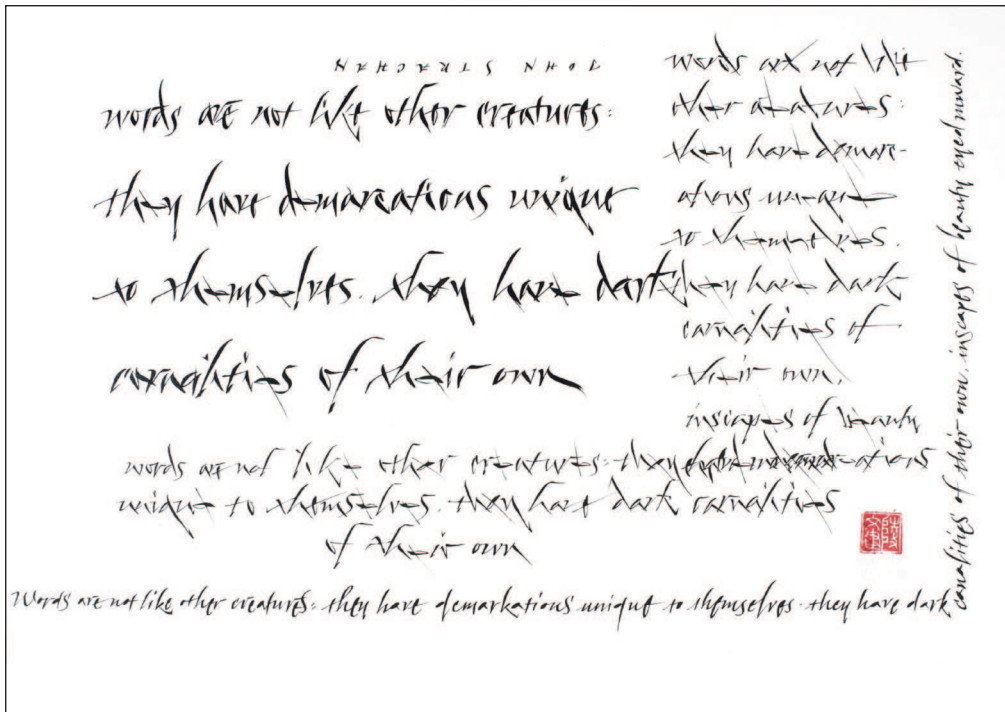 JOHN STRACHAN
words are not like other creatures:
they have demarcations unique
to themselves. they have dark
carnalities of their own
words are not like
other creatures:
they have demarc-
ations unique
to themselves.
they have dark
carnalities of
their own.
inscapes of beauty
words are not like other creatures: they
unique to themselves. they have dark carnalities
of their own
Words are not like other creatures: they have demarkations unique to themselves. they have dark
carnalities of their own. inscapes of beauty eyed inward.